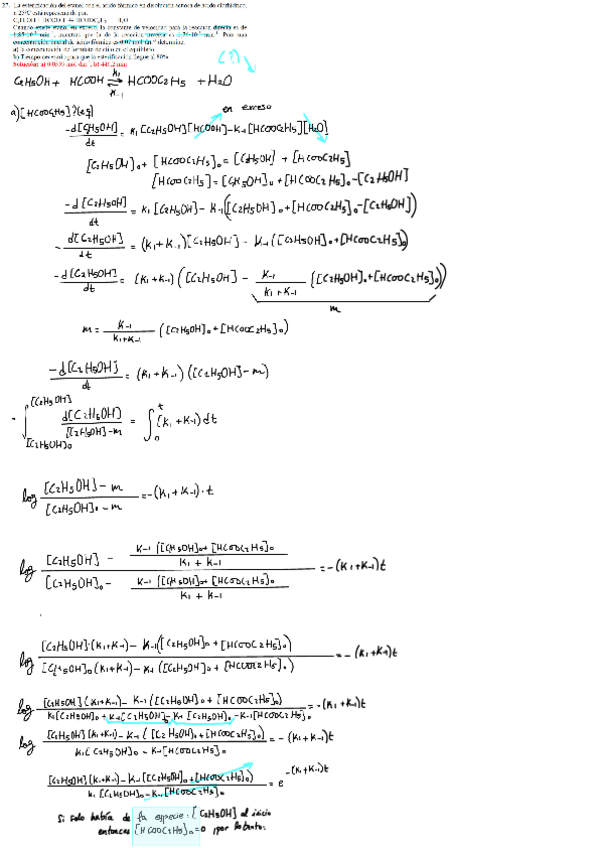 27. La esterificación del etanol con el ácido fórmico en disolución acuosa de ácido clorhídrico,
a 25°C está representada por:
C₂H₅OH + HCOOH ⇌ HCOOC₂H₅ + H₂O
Cuando existe etanol en exceso, la constante de velocidad para la reacción directa es de
min⁻¹, mientras que la de la reacción inversa es min⁻¹. Para una
concentración inicial de ácido fórmico es 0.07 determine:
a) la concentración de formiato de etilo en el equilibrio
b) Tiempo necesario para que la esterificación llegue al 80%
(?)
C₂H₅OH + HCOOH ⇌ HCOOC₂H₅ + H₂O
K₁
K₋₁
a) [HCOOC₂H₅]?(eq)
en exceso
-d[C₂H₅OH]/dt = K₁[C₂H₅OH][HCOOH]-K₋₁[HCOOC₂H₅][H₂O]
[C₂H₅OH]₀+[HCOOC₂H₅]₀=[C₂H₅OH]+[HCOOC₂H₅]
[HCOOC₂H₅]=[C₂H₅OH]₀+[HCOOC₂H₅]₀-[C₂H₅OH]
-d[C₂H₅OH]/dt = K₁[C₂H₅OH]-K₋₁([C₂H₅OH]₀+[HCOOC₂H₅]₀-[C₂H₅OH])
-d[C₂H₅OH]/dt = (K₁+K₋₁)[C₂H₅OH]-K₋₁([C₂H₅OH]₀+[HCOOC₂H₅]₀)
-d[C₂H₅OH]/dt = (K₁+K₋₁)([C₂H₅OH]-K₋₁/(K₁+K₋₁)([C₂H₅OH]₀+[HCOOC₂H₅]₀))
m
m = K₋₁/(K₁+K₋₁) ([C₂H₅OH]₀+[HCOOC₂H₅]₀)
-d[C₂H₅OH]/dt = (K₁+K₋₁)([C₂H₅OH]-m)
-∫[C₂H₅OH]₀^[C₂H₅OH] d[C₂H₅OH]/([C₂H₅OH]-m) = ∫₀^t (K₁+K₋₁)dt
log ([C₂H₅OH]-m)/([C₂H₅OH]₀-m) = -(K₁+K₋₁)·t
log ([C₂H₅OH] - K₋₁([C₂H₅OH]₀+[HCOOC₂H₅]₀)/(K₁+K₋₁))/([C₂H₅OH]₀ - K₋₁([C₂H₅OH]₀+[HCOOC₂H₅]₀)/(K₁+K₋₁)) = -(K₁+K₋₁)t
log ([C₂H₅OH]·(K₁+K₋₁)-K₋₁([C₂H₅OH]₀+[HCOOC₂H₅]₀))/([C₂H₅OH]₀(K₁+K₋₁)-K₋₁([C₂H₅OH]₀+[HCOOC₂H₅]₀)) = -(K₁+K₋₁)t
log ([C₂H₅OH](K₁+K₋₁)-K₋₁([C₂H₅OH]₀+[HCOOC₂H₅]₀))/(K₁[C₂H₅OH]₀+K₋₁[C₂H₅OH]₀-K₋₁[C₂H₅OH]₀-K₋₁[HCOOC₂H₅]₀) = -(K₁+K₋₁)t
log ([C₂H₅OH](K₁+K₋₁)-K₋₁([C₂H₅OH]₀+[HCOOC₂H₅]₀))/(K₁[C₂H₅OH]₀-K₋₁[HCOOC₂H₅]₀) = -(K₁+K₋₁)t
([C₂H₅OH](K₁+K₋₁)-K₋₁([C₂H₅OH]₀+[HCOOC₂H₅]₀))/(K₁[C₂H₅OH]₀-K₋₁[HCOOC₂H₅]₀) = e^-(K₁+K₋₁)t
Si solo había de la especie: [C₂H₅OH] al inicio
entonces [HCOOC₂H₅]₀=0 ¡por lo tanto: